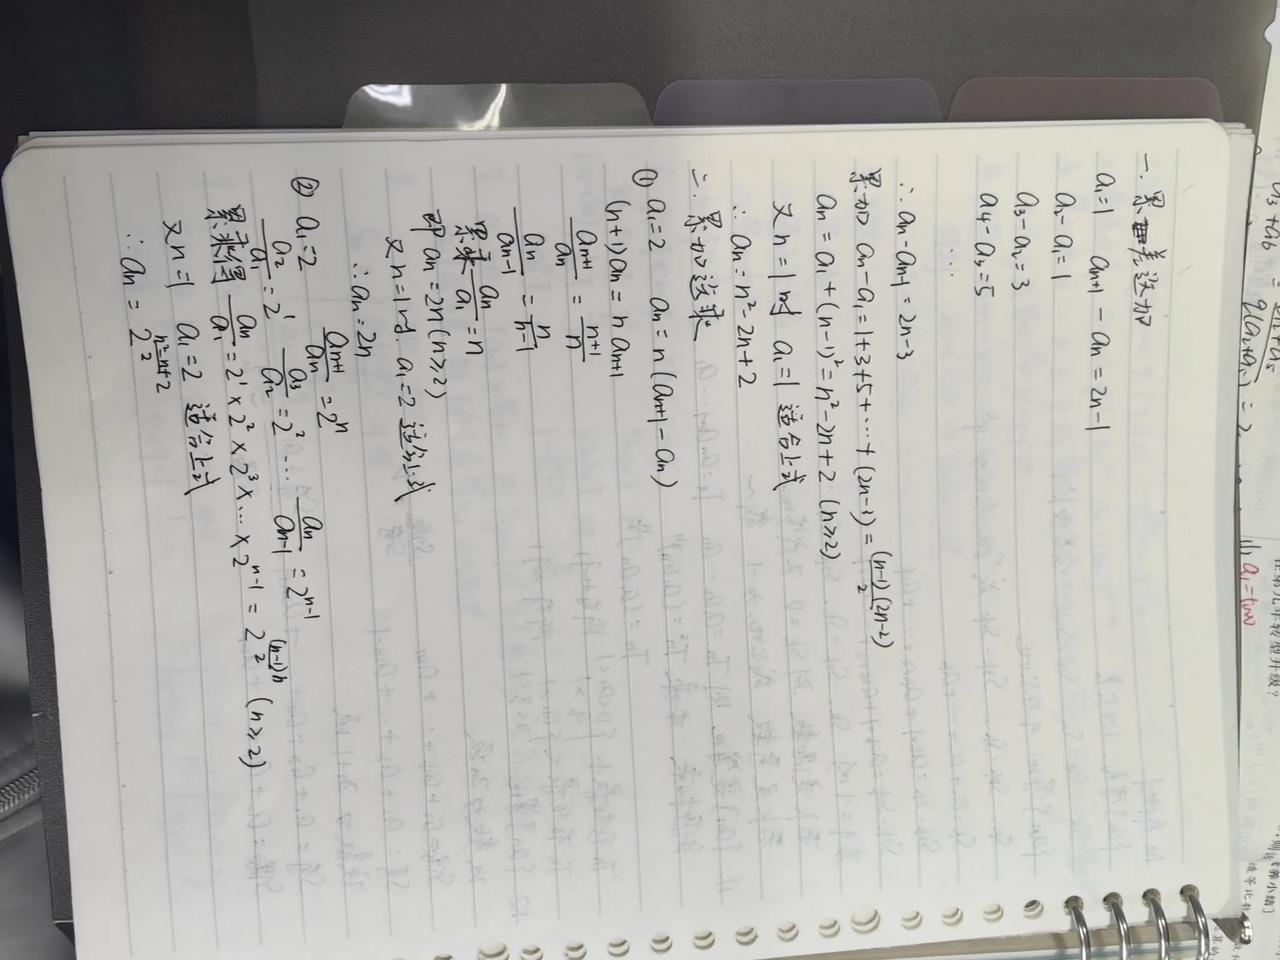 一. 累差迭加
a₁=1 aₙ₊₁-aₙ=2n-1
a₂-a₁=1
a₃-a₂=3
a₄-a₃=5
...
∴ aₙ-aₙ₋₁=2n-3
累加 aₙ-a₁=1+3+5+...+(2n-3)=(n-1)(2n-2)/2
aₙ=a₁+(n-1)²=n²-2n+2 (n≥2)
又 n=1时 a₁=1 适合上式
∴ aₙ=n²-2n+2
二. 累加迭乘
① a₁=2 aₙ=n(aₙ₊₁-aₙ)
(n+1)aₙ=naₙ₊₁
aₙ₊₁/aₙ=(n+1)/n
aₙ/aₙ₋₁=n/(n-1)
累乘 aₙ/a₁=n
即 aₙ=2n(n≥2)
又 n=1时. a₁=2 适合上式
∴ aₙ=2n
② a₁=2 aₙ₊₁/aₙ=2ⁿ
a₂/a₁=2¹ a₃/a₂=2² ... aₙ/aₙ₋₁=2ⁿ⁻¹
累乘得 aₙ/a₁=2¹×2²×2³×...×2ⁿ⁻¹=2^((n-1)n/2) (n≥2)
又 n=1 a₁=2 适合上式
∴ aₙ=2^((n²-n+2)/2)
(1) a₁=
转型升级?
小结]